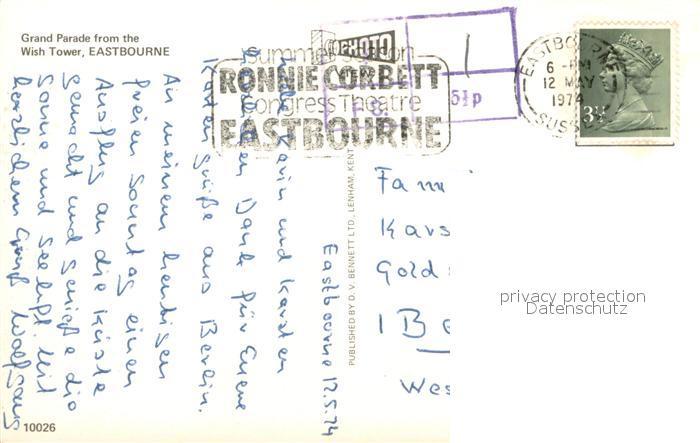 Grand Parade from the
Wish Tower, EASTBOURNE
Summer Season
RONNIE CORBETT
Congress Theatre
EASTBOURNE
PHOTO
1
5½p
EASTBOURNE
6 - PM
12 MAY
1974
SUSSEX
3½
Eastbourne 12.5.74
Liebe Karin und Karsten
Dank für Eure
Kartengrüße aus Berlin.
An meinem heutigen
freien Sonntag einen
Ausflug an die Küste
gemacht und genieße die
Sonne und Seeluft. Mit
herzlichem Gruß Wolfgang
PUBLISHED BY D. V. BENNETT LTD., LENHAM, KENT
Fam
Kars
Gold
1 Be
Wes
privacy protection
Datenschutz
10026